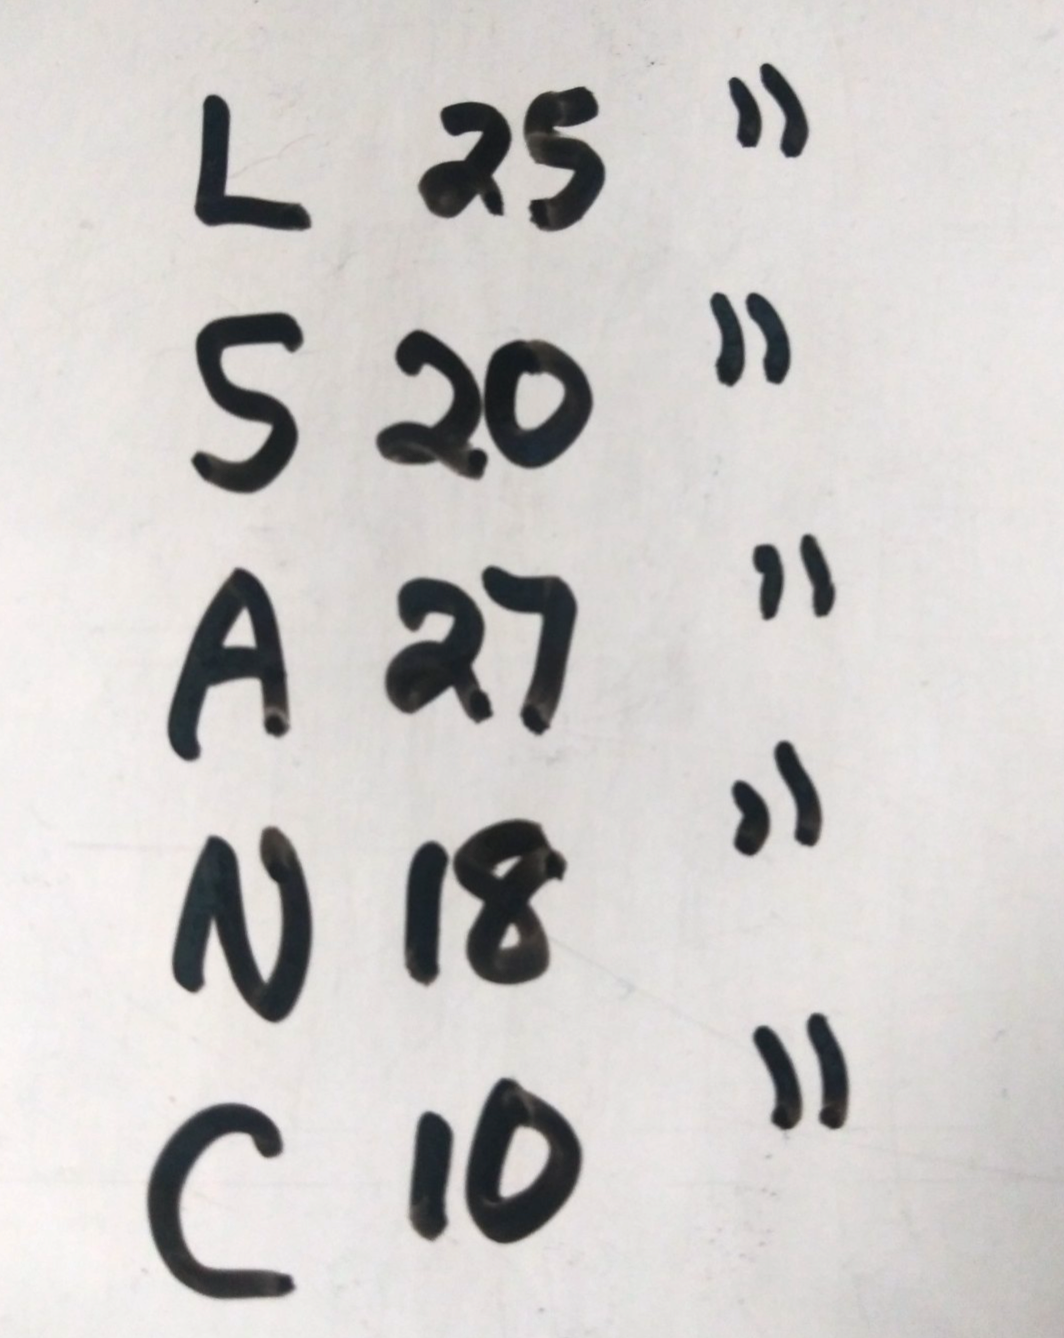 L 25 "
S 20 "
A 27 "
N 18 "
C 10 "